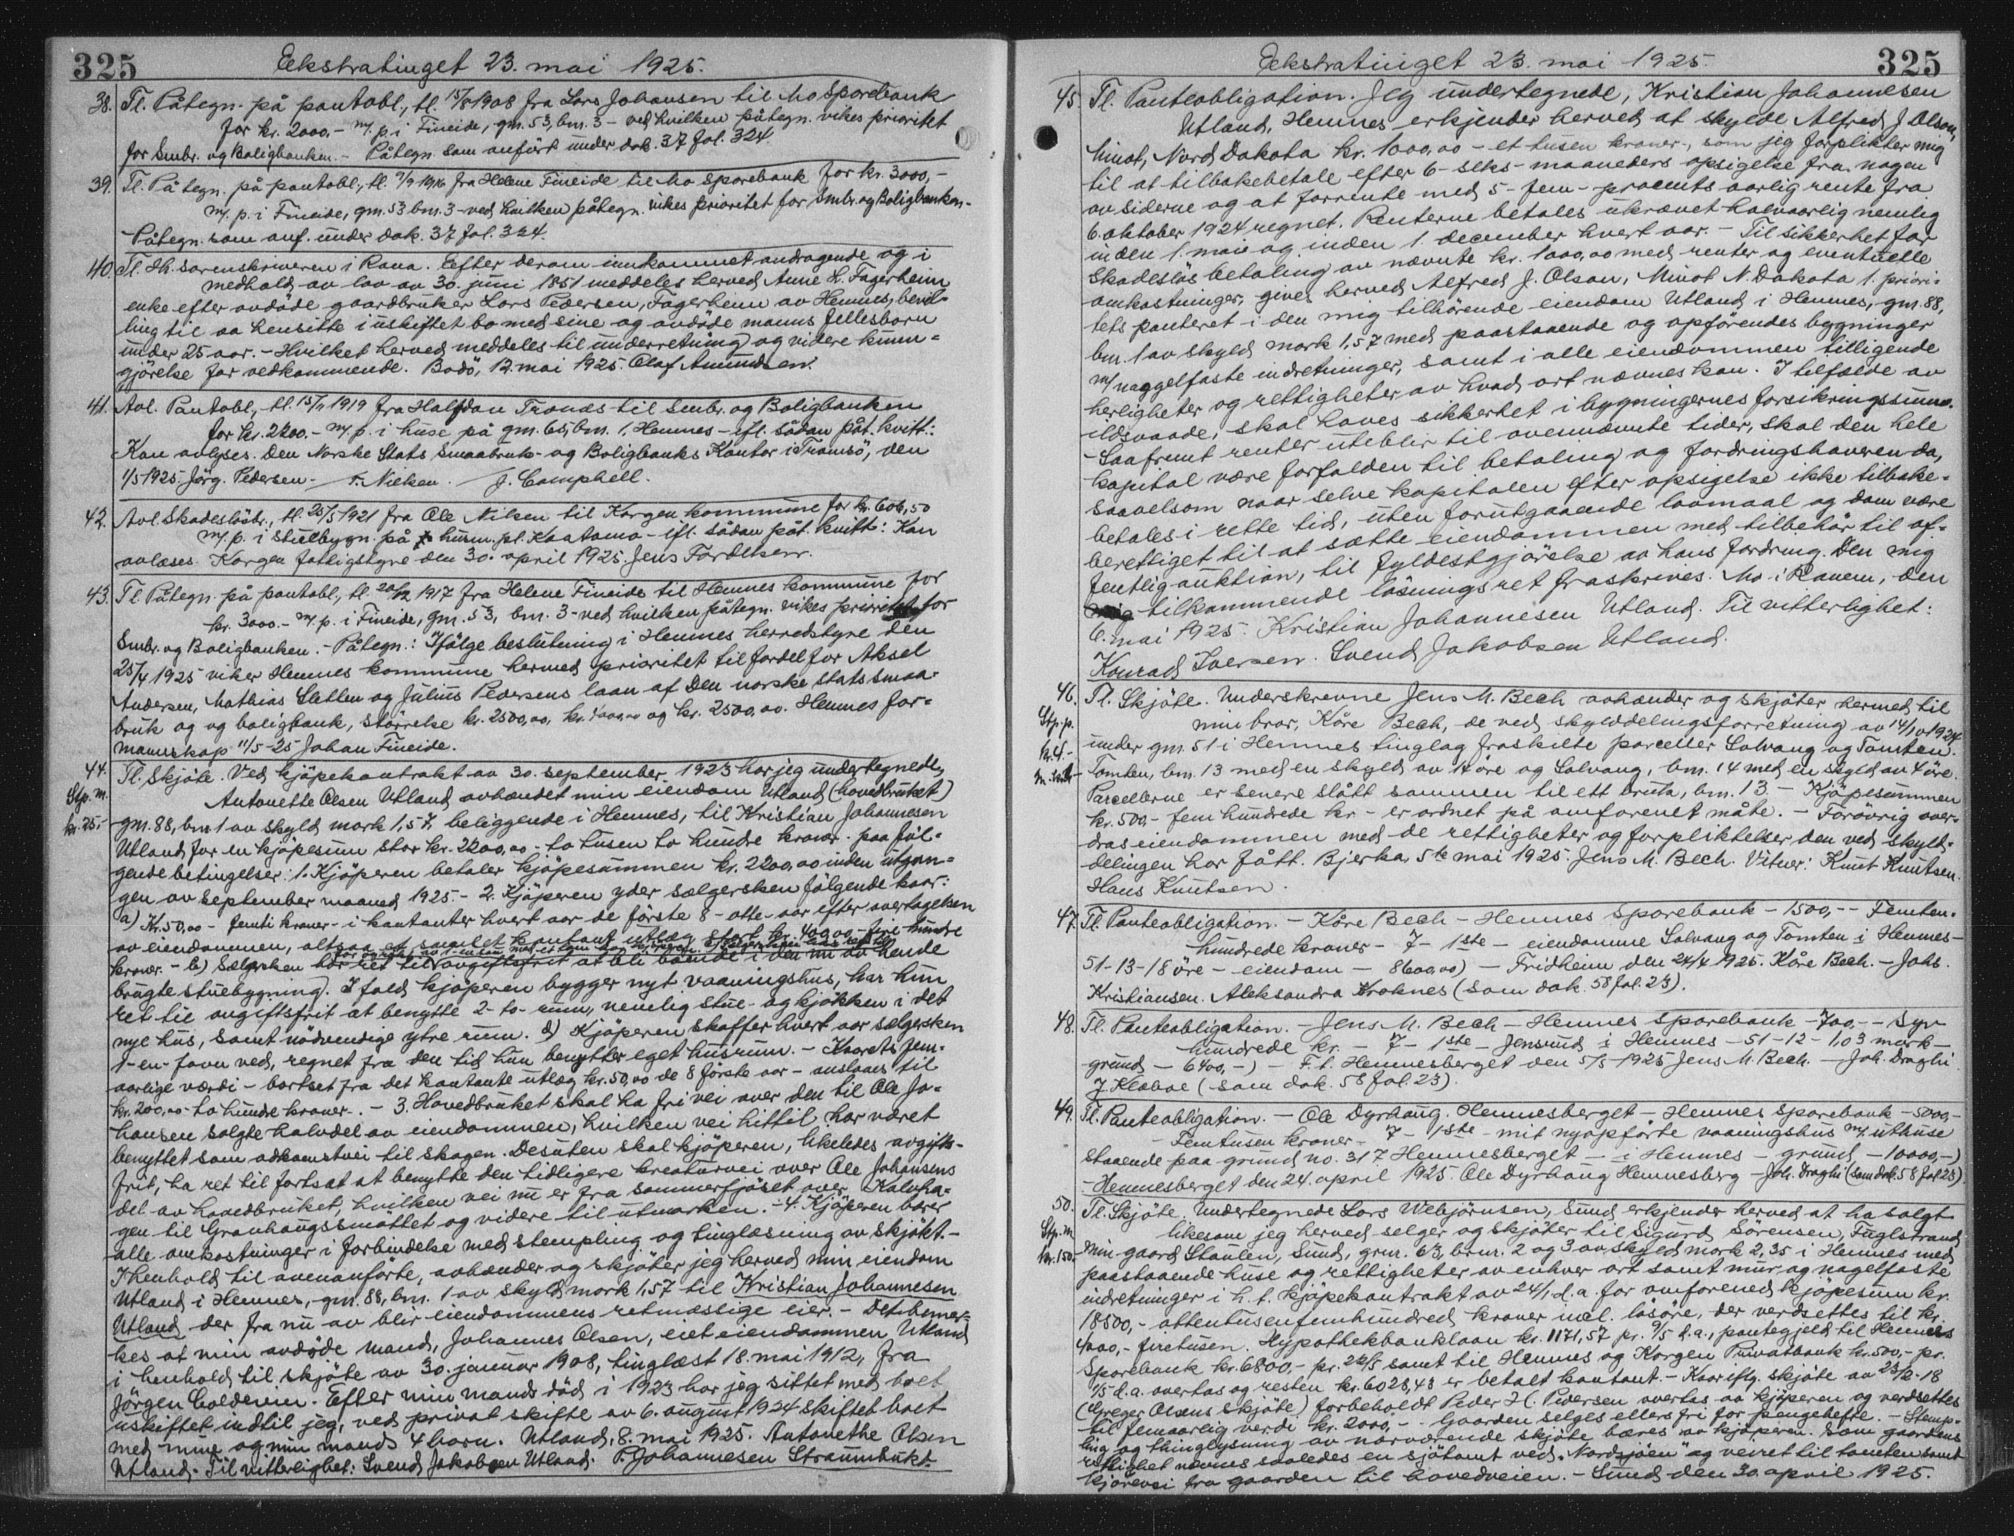 325
Ekstratinget 23. mai 1925.
38. Tl. Påtegn. på pantobl., tl. 15/8 1908 fra Lars Johansen til Mo Sparebank
for kr. 2000,- m/ p. i Fineide, gnr. 53, bnr. 3 - ved hvilken påtegn. vikes prioritet
for Smbr. og Boligbanken. - Påtegn. som anført under dok. 37 fol. 324.
39. Tl. Påtegn. på pantobl., tl. 7/9 1916 fra Helene Fineide til Mo Sparebank for kr. 3000,-
m/ p. i Fineide, gnr. 53 bnr. 3 - ved hvilken påtegn. vikes prioritet for Smbr. og Boligbanken.-
Påtegn. som anf. under dok. 37 fol. 324.
40. Tl. Hr. sorenskriveren i Rana. Efter derom innkommet andragende og i
medhold av lov av 30. juni 1851 meddeles herved Anne H. Fagerheim
enke efter avdøde gaardbruker Lars Pedersen, Fagerheim av Hemnes, bevil-
ling til aa hensitte i uskiftet bo med sine og avdøde manns fellesbarn
under 25 aar. - Hvilket herved meddeles til underretning og videre kunn-
gjørelse for vedkommende. Bodø, 12. mai 1925. Olaf Amundsen.
41. Avl. Pantobl., tl. 15/11 1919 fra Halfdan Tranås til Smbr. og Boligbanken
for kr. 2200.- m/ p. i huse på gnr. 65, bnr. 1, Hemnes - ifl. sådan påt. kvitt.:
Kan avlyses. Den Norske Stats Smaabruk- og Boligbanks Kontor i Tromsø, den
1/5 1925. Jørg. Pedersen. F. Nielsen. J. Camphell.
42. Avl. Skadesløsbr., tl. 25/5 1921 fra Ole Nilsen til Korgen kommune for kr. 606,50
m/ p. i stuebygn. på husm. pl. Kaatamo - ifl. sådan påt. kvitt.: Kan
avlæses. Korgen fattigstyre den 30. april 1925. Jens Forditsen.
43. Tl. Påtegn. på pantobl., tl. 20/12 1917 fra Helene Fineide til Hemnes kommune for
kr. 3000.- m/ p. i Fineide, gnr. 53, bnr. 3 - ved hvilken påtegn. vikes prioritet for
Smbr. og Boligbanken. - Påtegn.: Ifølge beslutning i Hemnes herredstyre den
25/4 1925 viker Hemnes kommune hermed prioritet til fordel for Aksel
Andersen, Mathias Sletten og Julius Pedersens laan af Den norske stats smaa-
bruk og og boligbank, størrelse kr. 2500,00, kr. 4000,00 og kr. 2500,00. Hemnes for-
mannskap 11/5-25 Johan Fineide.
44. Tl. Skjøte. Ved kjøpekontrakt av 30. september 1923 har jeg undertegnede,
Stp. m.
kr. 25.-
Antonette Olsen Utland avhændet min eiendom Utland (hovedbruket)
gnr. 88, bnr. 1 av skyld mark 1,57, beliggende i Hemnes, til Kristian Johannesen
Utland for en kjøpesum stor kr. 2200,00 - to tusen to hundre kroner - paa føl-
gende betingelser: 1. Kjøperen betaler kjøpesummen kr. 2200,00 inden utgan-
gen av september maaned 1925. - 2. Kjøperen yder sælgersken følgende kaar:
a) Kr. 50,00 - femti kroner - i kontanter hvert aar de første 8 - otte - aar efter overtagelsen
av eiendommen, altsaa et samlet kontant utlæg stort kr. 400,00 - fire hundre
kroner. - b) Sælgersken har ret til avgiftsfrit at bli boende i den nu av hende
brugte stuebygning. I fald kjøperen bygger nyt vaaningshus, har hun
ret til avgiftsfrit at benytte 2 - to - rum, nemlig stue og kjøkken i det
nye hus, samt nødvendige ytre rum. d) Kjøperen skaffer hvert aar sælgersken
1 - en - favn ved, regnet fra den tid hun benytter eget husrum. - Kaarets fem-
aarlige værdi - bortset fra det kontante utlæg kr. 50,00 de 8 første aar - anslaaes til
kr. 200,00 to hundre kroner. - 3. Hovedbruket skal ha fri vei over den til Ole Jo-
hansen solgte halvdel av eiendommen, hvilken vei hittil har været
benyttet som adkomstvei til skogen. Desuten skal kjøperen, likeledes avgifts-
frit, ha ret til fortsat at benytte den tidligere kreaturvei over Ole Johansens
del av hovedbruket, hvilken vei nu er fra sommerfjøset over Kalvha-
gen til Granhaugssmottet og videre til utmarken. - 4. Kjøperen bærer
alle omkostninger i forbindelse med stempling og tinglæsning av skjøtet. -
I henhold til ovenanførte, avhænder og skjøter jeg herved min eiendom
Utland i Hemnes, gnr. 88, bnr. 1 av skyld mark 1,57 til Kristian Johannesen
Utland der fra nu av blir eiendommens retmæssige eier. - Det bemer-
kes at min avdøde mand, Johannes Olsen, eiet eiendommen Utland
i henhold til skjøte av 30. januar 1908, tinglæst 18. mai 1912, fra
Jørgen Coldevin. Efter min mands død i 1923 har jeg sittet med boet
uskiftet indtil jeg, ved privat skifte av 6. august 1924 skiftet boet
med mine og min mands 4 barn. Utland, 8. mai 1925. Antonethe Olsen
Utland. Til vitterlighet: Svend Jakobsen Utland. P. Johannesen Straumbukt.
325
Ekstratinget 23. mai 1925.
45. Tl. Panteobligation. Jeg undertegnede, Kristian Johannesen
Utland, Hemnes erkjender herved at skylde Alfred J. Olson,
Minot, Nord Dakota kr. 1000,00 - et tusen kroner, som jeg forplikter mig
til at tilbakebetale efter 6 - seks - maaneders opsigelse fra nogen
av siderne og at forrente med 5 - fem - procents aarlig rente fra
6. oktober 1924 regnet. Renterne betales ukrævet halvaarlig nemlig
inden 1. mai og inden 1. december hvert aar. - Til sikkerhet for
skadesløs betaling av nævnte kr. 1000,00 med renter og eventuelle
omkostninger, gives herved Alfred J. Olson, Minot N. Dakota 1. priori-
tets panteret i den mig tilhørende eiendom Utland i Hemnes, gnr. 88,
bnr. 1 av skyld mark 1,57 med paastaaende og opførendes bygninger
m/ naggelfaste indretninger, samt i alle eiendommen tilligende
herligheter og rettigheter av hvad art nævnes kan. I tilfælde av
ildsvaade, skal haves sikkerhet i bygningernes forsikringssum.
- Saafremt renter utebler til ovennævnte tider, skal den hele
kapital være forfalden til betaling og fordringshaveren da,
saavelsom naar selve kapitalen efter opsigelse ikke tilbake-
betales i rette tid, uten forutgaaende lovmaal og dom være
berettiget til at sætte eiendommen med tilbehør til of-
fentlig auktion, til fyldestgjørelse av hans fordring. Den mig
tilkommende løsningsret fraskrives. Mo i Ranen, den
6. mai 1925. Kristian Johannesen Utland. Til vitterlighet:
Konrad Iversen. Svend Jakobsen Utland.
46. Tl. Skjøte. Underskrevne Jens M. Bech avhænder og skjøter hermed til
Stp. p.
kr. 4.-
min bror, Kåre Bech, de ved skylddelingsforretning av 14/10 1924
under gnr. 51 i Hemnes tinglag fraskilte parceller Solvang og Tomten.
Tomten, bnr. 13 med en skyld av 14 øre og Solvang, bnr. 14 med en skyld av 4 øre.
Parcellerne er senere slått sammen til ett bruk, bnr. 13. - Kjøpesummen
kr. 500,- fem hundrede kr - er ordnet på omforenet måte. - Forøvrig over-
dras eiendommen med de rettigheter og forpliktelser den ved skyld-
delingen har fått. Bjerka 5te mai 1925. Jens M. Bech. Vitner: Knut Knutsen.
Hans Knutsen.
47. Tl. Panteobligation. - Kåre Bech - Hemnes Sparebank - 1500,- - Femten-
hundrede kroner - 7 - 1ste - eiendomme Solvang og Tomten i Hemnes -
51-13-18 øre - eiendom - 8600,00) - Fridheim den 24/4 1925. Kåre Bech. - Johs.
Kristiansen. Aleksandra Kroknes (som dok. 58 fol. 23).
48. Tl. Panteobligation. - Jens M. Bech - Hemnes Sparebank - 700,- - Syv
hundrede kr. - 7 - 1ste - Jensrud i Hemnes - 51-12-1,03 mark -
grund - 6400,-) - F. t. Hemnesberget den 5/5 1925 Jens M. Bech. - Joh. Draghi
J. Klæboe (som dok. 58 fol. 23).
49. Tl. Panteobligation. - Ole Dyrhaug. Hemnesberget - Hemnes Sparebank - 5000,-
- Femtusen kroner - 7 - 1ste - mit nyopførte vaaningshus m/ uthuse
staaende paa grund no. 317 Hemnesberget - i Hemnes - grund - 10000,-)
- Hemnesberget den 24. april 1925. Ole Dyrhaug Hemnesberg - Joh. Draghi (som dok. 58 fol 23).
50. Tl. Skjøte. Undertegnede Lars Webjørnsen, Sund erkjender herved at ha solgt
Stp. m.
kr. 150.-
likesom jeg herved selger og skjøter til Sigurd Sørensen, Fuglstrand
min gaard Slaalen, Sund, gnr. 63, bnr. 2 og 3 av skyld mark 2,35 i Hemnes med
paastaaende huse og rettigheter av enhver art samt mur og nagelfaste
indretninger i h. t. kjøpekontrakt av 24/1 d. a. for omforened kjøpesum kr.
18500,- attentusenfemhundred kroner incl. løsøre, der verdsettes til kr.
4000,- firetusen. Hypothekbanklaan kr. 1171,57 pr. 9/5 d. a., pantegjeld til Hemnes
Sparebank kr. 6800,- pr. 22/5 samt til Hemnes og Korgen Privatbank kr. 500,- pr.
9/5 d. a. overtas og resten kr. 6028,43 er betalt kontant. - Kaar iflg. skjøte av 23/2-18
(Greger Olsens skjøte) forbeholdt Peder H. Pedersen overtas av kjøperen og verdsettes
til femaarlig verdi kr. 2000,- - Gaarden selges ellers fri for pengehefte. - Stemp-
ling og thinglysning av nærværende skjøte bæres av kjøperen. Som gaardens
rettighet nævnes saaledes en sjøtomt ved „Nordsjøen" og veiret til tomten samt
kjørevei fra gaarden til hovedveien. - Sund den 30. april 1925.